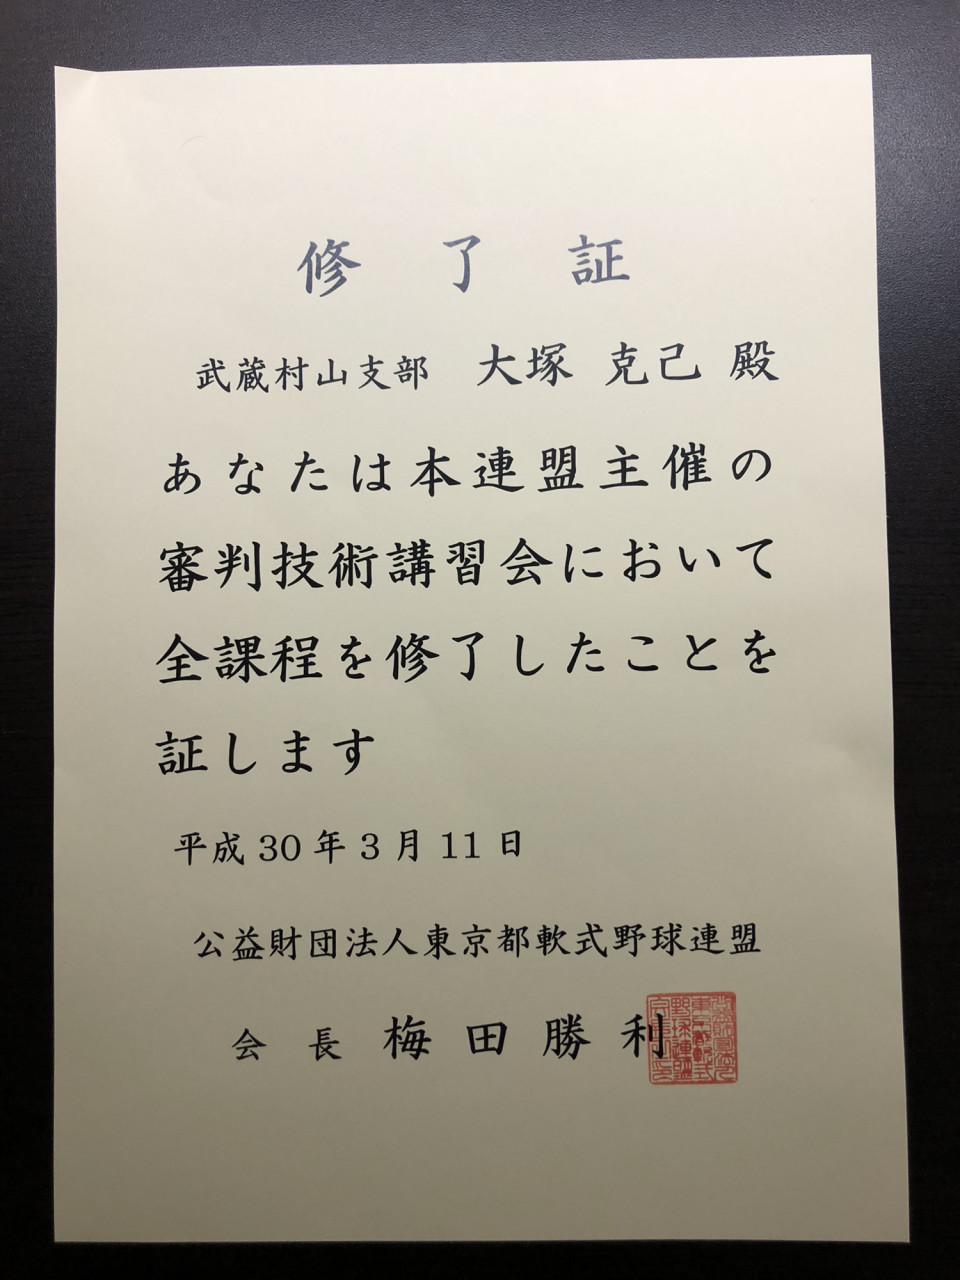 修了証
武蔵村山支部 大塚 克己 殿
あなたは本連盟主催の
審判技術講習会において
全課程を修了したことを
証します
平成30年3月11日
公益財団法人東京都軟式野球連盟
会長 梅田勝利